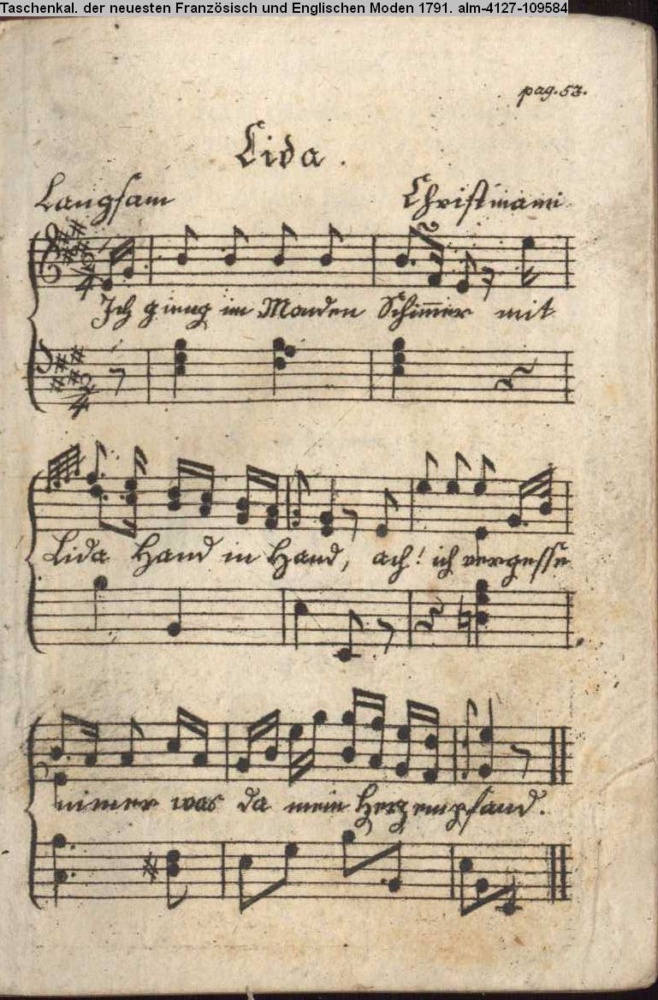 Taschenkal. der neuesten Französisch und Englischen Moden 1791. alm-4127-109584
pag. 53.
Lida.
Langsam Christmann
Ich gieng im Monden Schim̅er mit
Lida Hand in Hand, ach! ich vergesse
nimer was da mein Herz empfand.